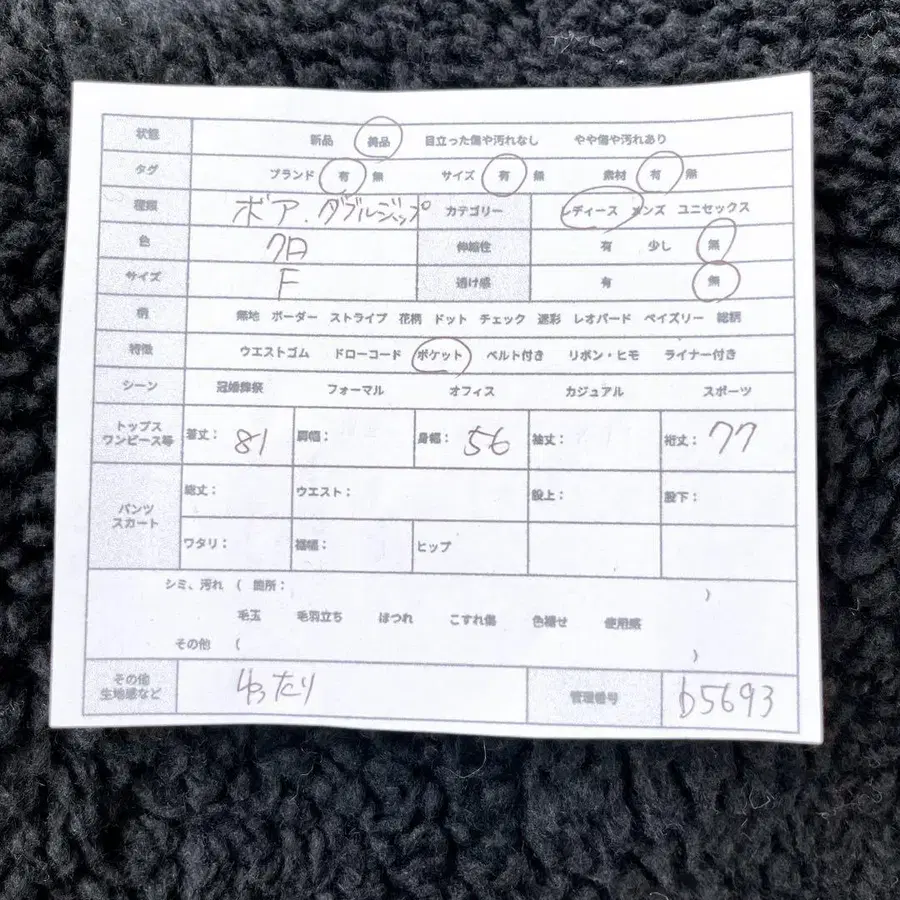 状態 新品 美品 目立った傷や汚れなし やや傷や汚れあり
タグ ブランド 有 無 サイズ 有 無 素材 有 無
種類 ボア.ダブルジップ カテゴリー レディース メンズ ユニセックス
色 クロ 伸縮性 有 少し 無
サイズ F 透け感 有 無
柄 無地 ボーダー ストライプ 花柄 ドット チェック 迷彩 レオパード ペイズリー 総柄
特徴 ウエストゴム ドローコード ポケット ベルト付き リボン・ヒモ ライナー付き
シーン 冠婚葬祭 フォーマル オフィス カジュアル スポーツ
トップス
ワンピース等 着丈: 81 肩幅: 身幅: 56 袖丈: 裄丈: 77
パンツ
スカート 総丈: ウエスト: 股上: 股下:
ワタリ: 裾幅: ヒップ
シミ、汚れ ( 箇所: )
毛玉 毛羽立ち ほつれ こすれ傷 色褪せ 使用感
その他 ( )
その他
生地感など ゆったり 管理番号 b5693